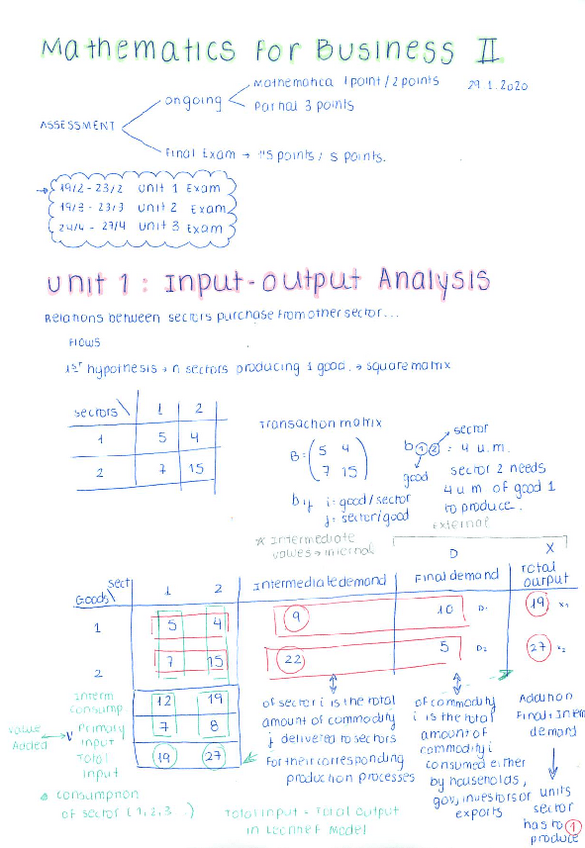 Mathematics For Business II
29.1.2020
Mathematica 1point / 2points
ongoing
Partial 3 points
ASSESSMENT
Final Exam → 5 points / 5 points.
→ 19/2 - 23/2 unit 1 Exam
19/3 - 23/3 unit 2 Exam
24/4 - 27/4 unit 3 Exam
unit 1 : Input-output Analysis
Relations between sectors purchase from other sector...
Flows
1st hypothesis → n sectors producing 1 good. → square matrix
sectors \ 1 2
1 5 4
2 7 15
Transaction matrix
B = ( 5 4
7 15 )
bij i: good/sector
j: sector/good
sector
b12 = 4 u.m.
good
sector 2 needs
4 u m of good 1
to produce.
* Intermediate
values → internal
external
D X
Goods \ sect 1 2 Intermediate demand Final demand Total output
1 5 4 9 10 D1 19 x1
2 7 15 22 5 D2 27 x2
Interm consump 12 19
Value Added → V Primary Input 7 8
Total Input 19 27
of sector i is the total
amount of commodity
j delivered to sectors
For their corresponding
production processes
of commodity
i is the total
amount of
commodity i
consumed either
by households,
gov, investors or
exports
Addition
Final + Interm
demand
units
sector
has to 1
produce
consumption
of sector (1, 2, 3 )
Total input = Total output
in Leontief Model